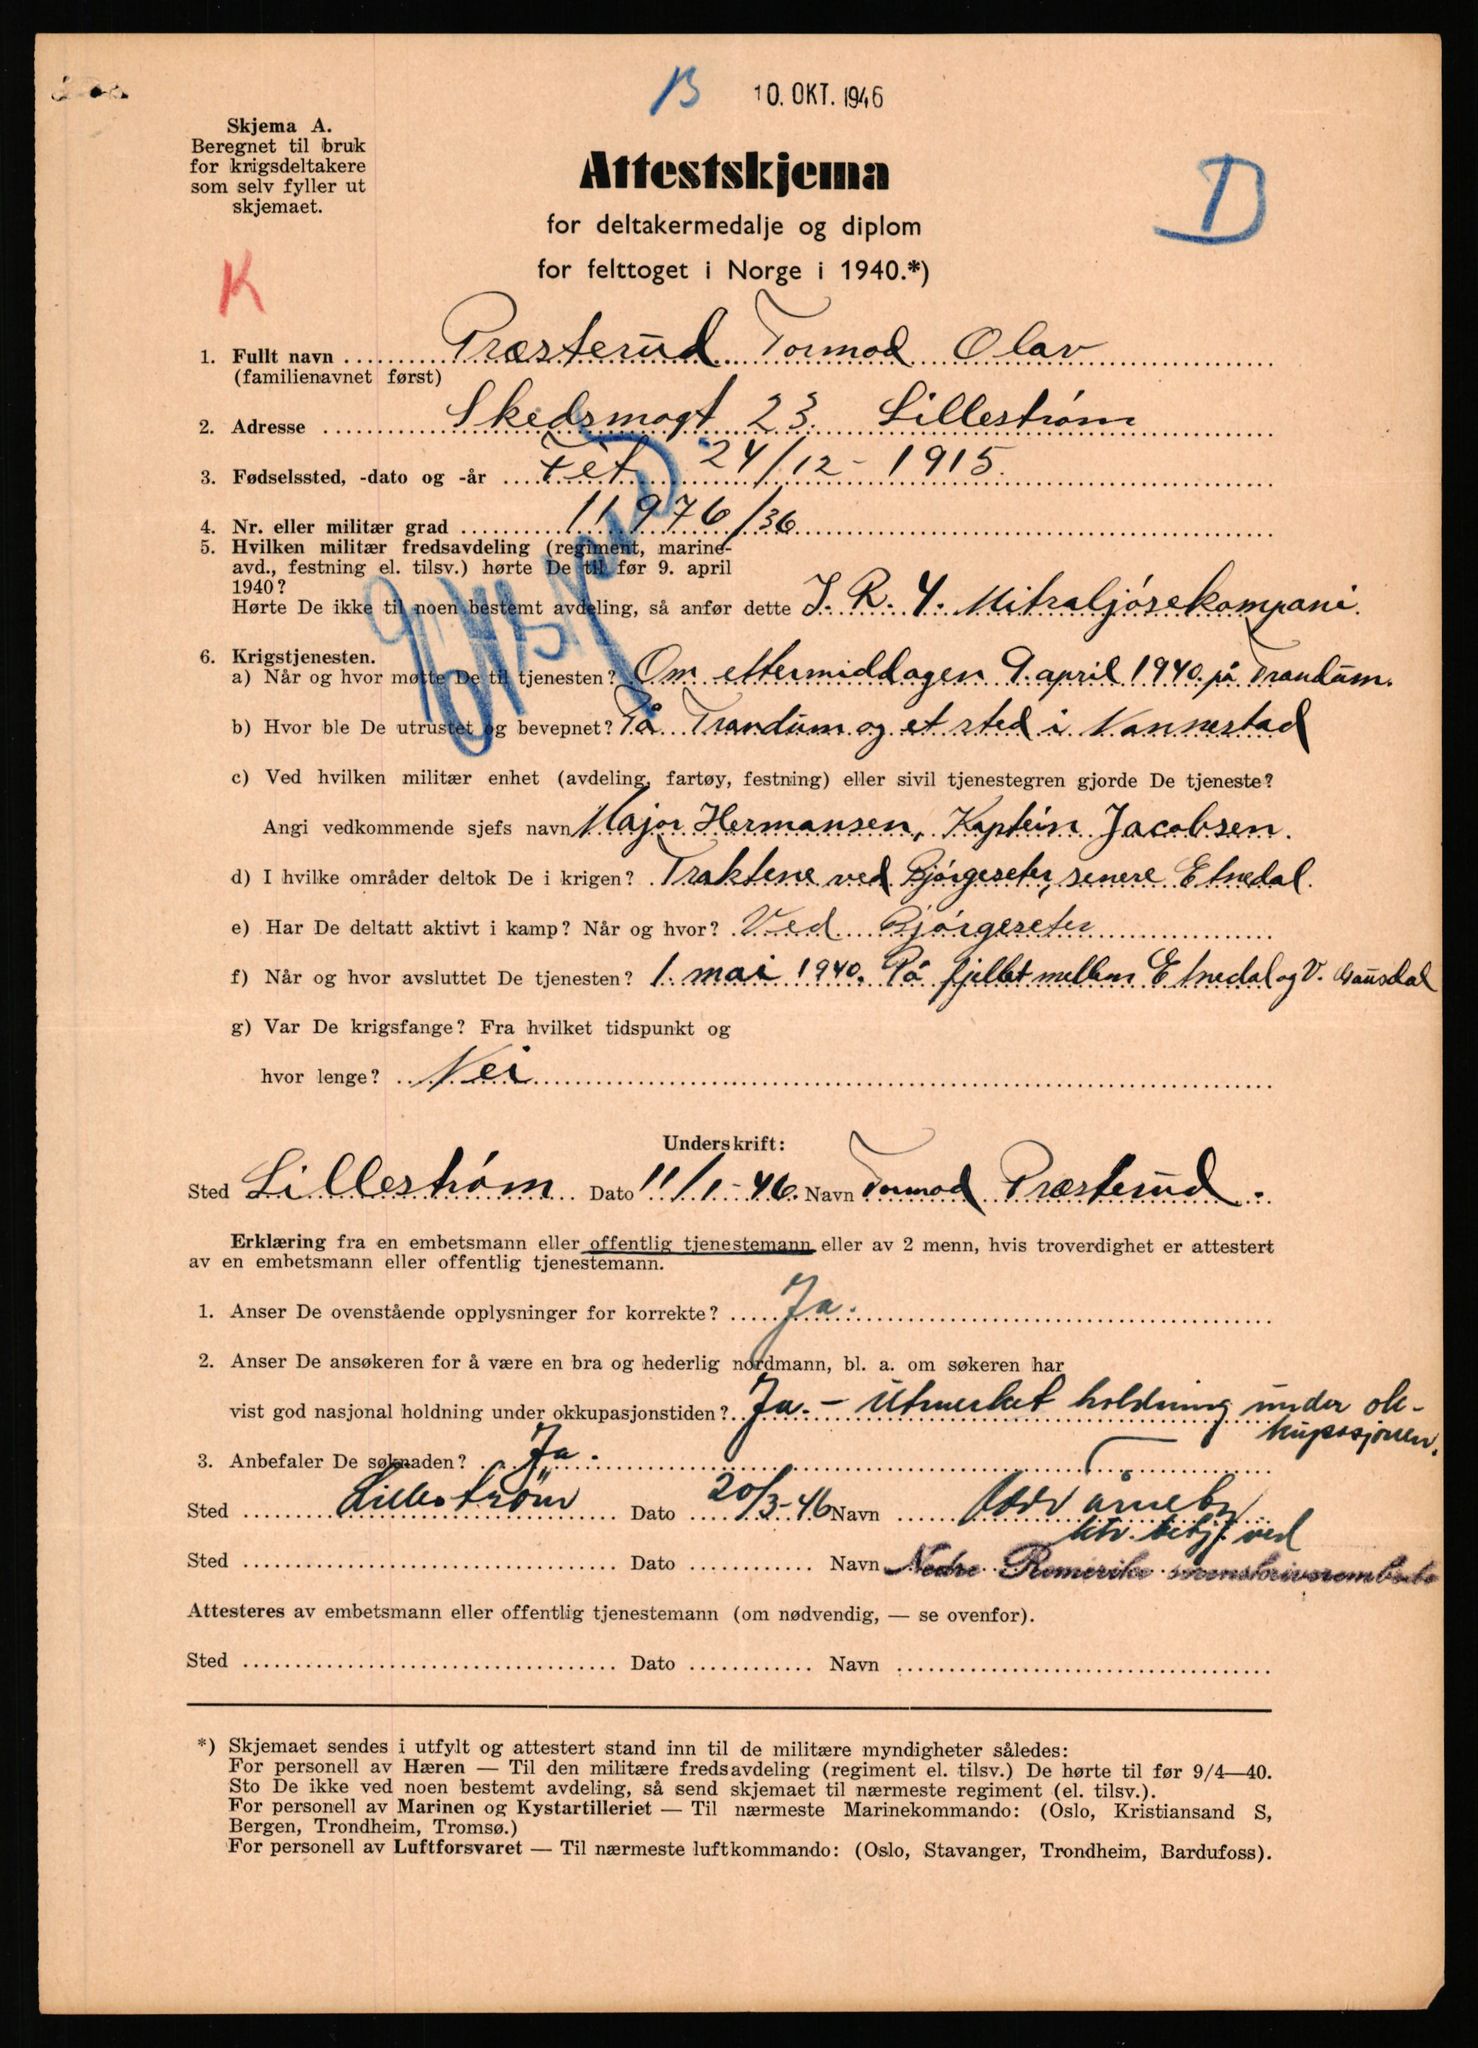 B 10. OKT. 1946
Skjema A.
Beregnet til bruk
for krigsdeltakere
som selv fyller ut
skjemaet.
Attestskjema
for deltakermedalje og diplom
for felttoget i Norge i 1940.*)
D
K
1. Fullt navn Præsterud Tormod Olav
(familienavnet først)
2. Adresse Skedsmogt 23. Lillestrøm
3. Fødselssted, -dato og -år Fet 24/12 - 1915.
4. Nr. eller militær grad 11976/36
5. Hvilken militær fredsavdeling (regiment, marine-
avd., festning el. tilsv.) hørte De til før 9. april
1940?
Hørte De ikke til noen bestemt avdeling, så anfør dette I. R. 4. Mitraljøsekompani.
6. Krigstjenesten.
a) Når og hvor møtte De til tjenesten? Om ettermiddagen 9. april 1940. på Trandum.
b) Hvor ble De utrustet og bevepnet? På Trandum og et sted i Nannestad
c) Ved hvilken militær enhet (avdeling, fartøy, festning) eller sivil tjenestegren gjorde De tjeneste?
Angi vedkommende sjefs navn Major Hermansen, Kaptein Jacobsen.
d) I hvilke områder deltok De i krigen? Traktene ved Bjørgeseter, senere Etnedal.
e) Har De deltatt aktivt i kamp? Når og hvor? Ved Bjørgeseter
f) Når og hvor avsluttet De tjenesten? 1. mai 1940. På fjellet mellem Etnedal og V. Gausdal
g) Var De krigsfange? Fra hvilket tidspunkt og
hvor lenge? Nei
Underskrift:
Sted Lillestrøm Dato 11/1-46. Navn Tormod Præsterud.
Erklæring fra en embetsmann eller offentlig tjenestemann eller av 2 menn, hvis troverdighet er attestert
av en embetsmann eller offentlig tjenestemann.
1. Anser De ovenstående opplysninger for korrekte? Ja.
2. Anser De ansøkeren for å være en bra og hederlig nordmann, bl. a. om søkeren har
vist god nasjonal holdning under okkupasjonstiden? Ja. - Utmerket holdning under ok-
kupasjonen.
3. Anbefaler De søknaden? Ja.
Sted Lillestrøm Dato 20/3-46 Navn
ved
Sted Dato Navn Nedre Romerike sorenskriverembete
Attesteres av embetsmann eller offentlig tjenestemann (om nødvendig, — se ovenfor).
Sted Dato Navn
*) Skjemaet sendes i utfylt og attestert stand inn til de militære myndigheter således:
For personell av Hæren — Til den militære fredsavdeling (regiment el. tilsv.) De hørte til før 9/4—40.
Sto De ikke ved noen bestemt avdeling, så send skjemaet til nærmeste regiment (el. tilsv.).
For personell av Marinen og Kystartilleriet — Til nærmeste Marinekommando: (Oslo, Kristiansand S,
Bergen, Trondheim, Tromsø.)
For personell av Luftforsvaret — Til nærmeste luftkommando: (Oslo, Stavanger, Trondheim, Bardufoss).